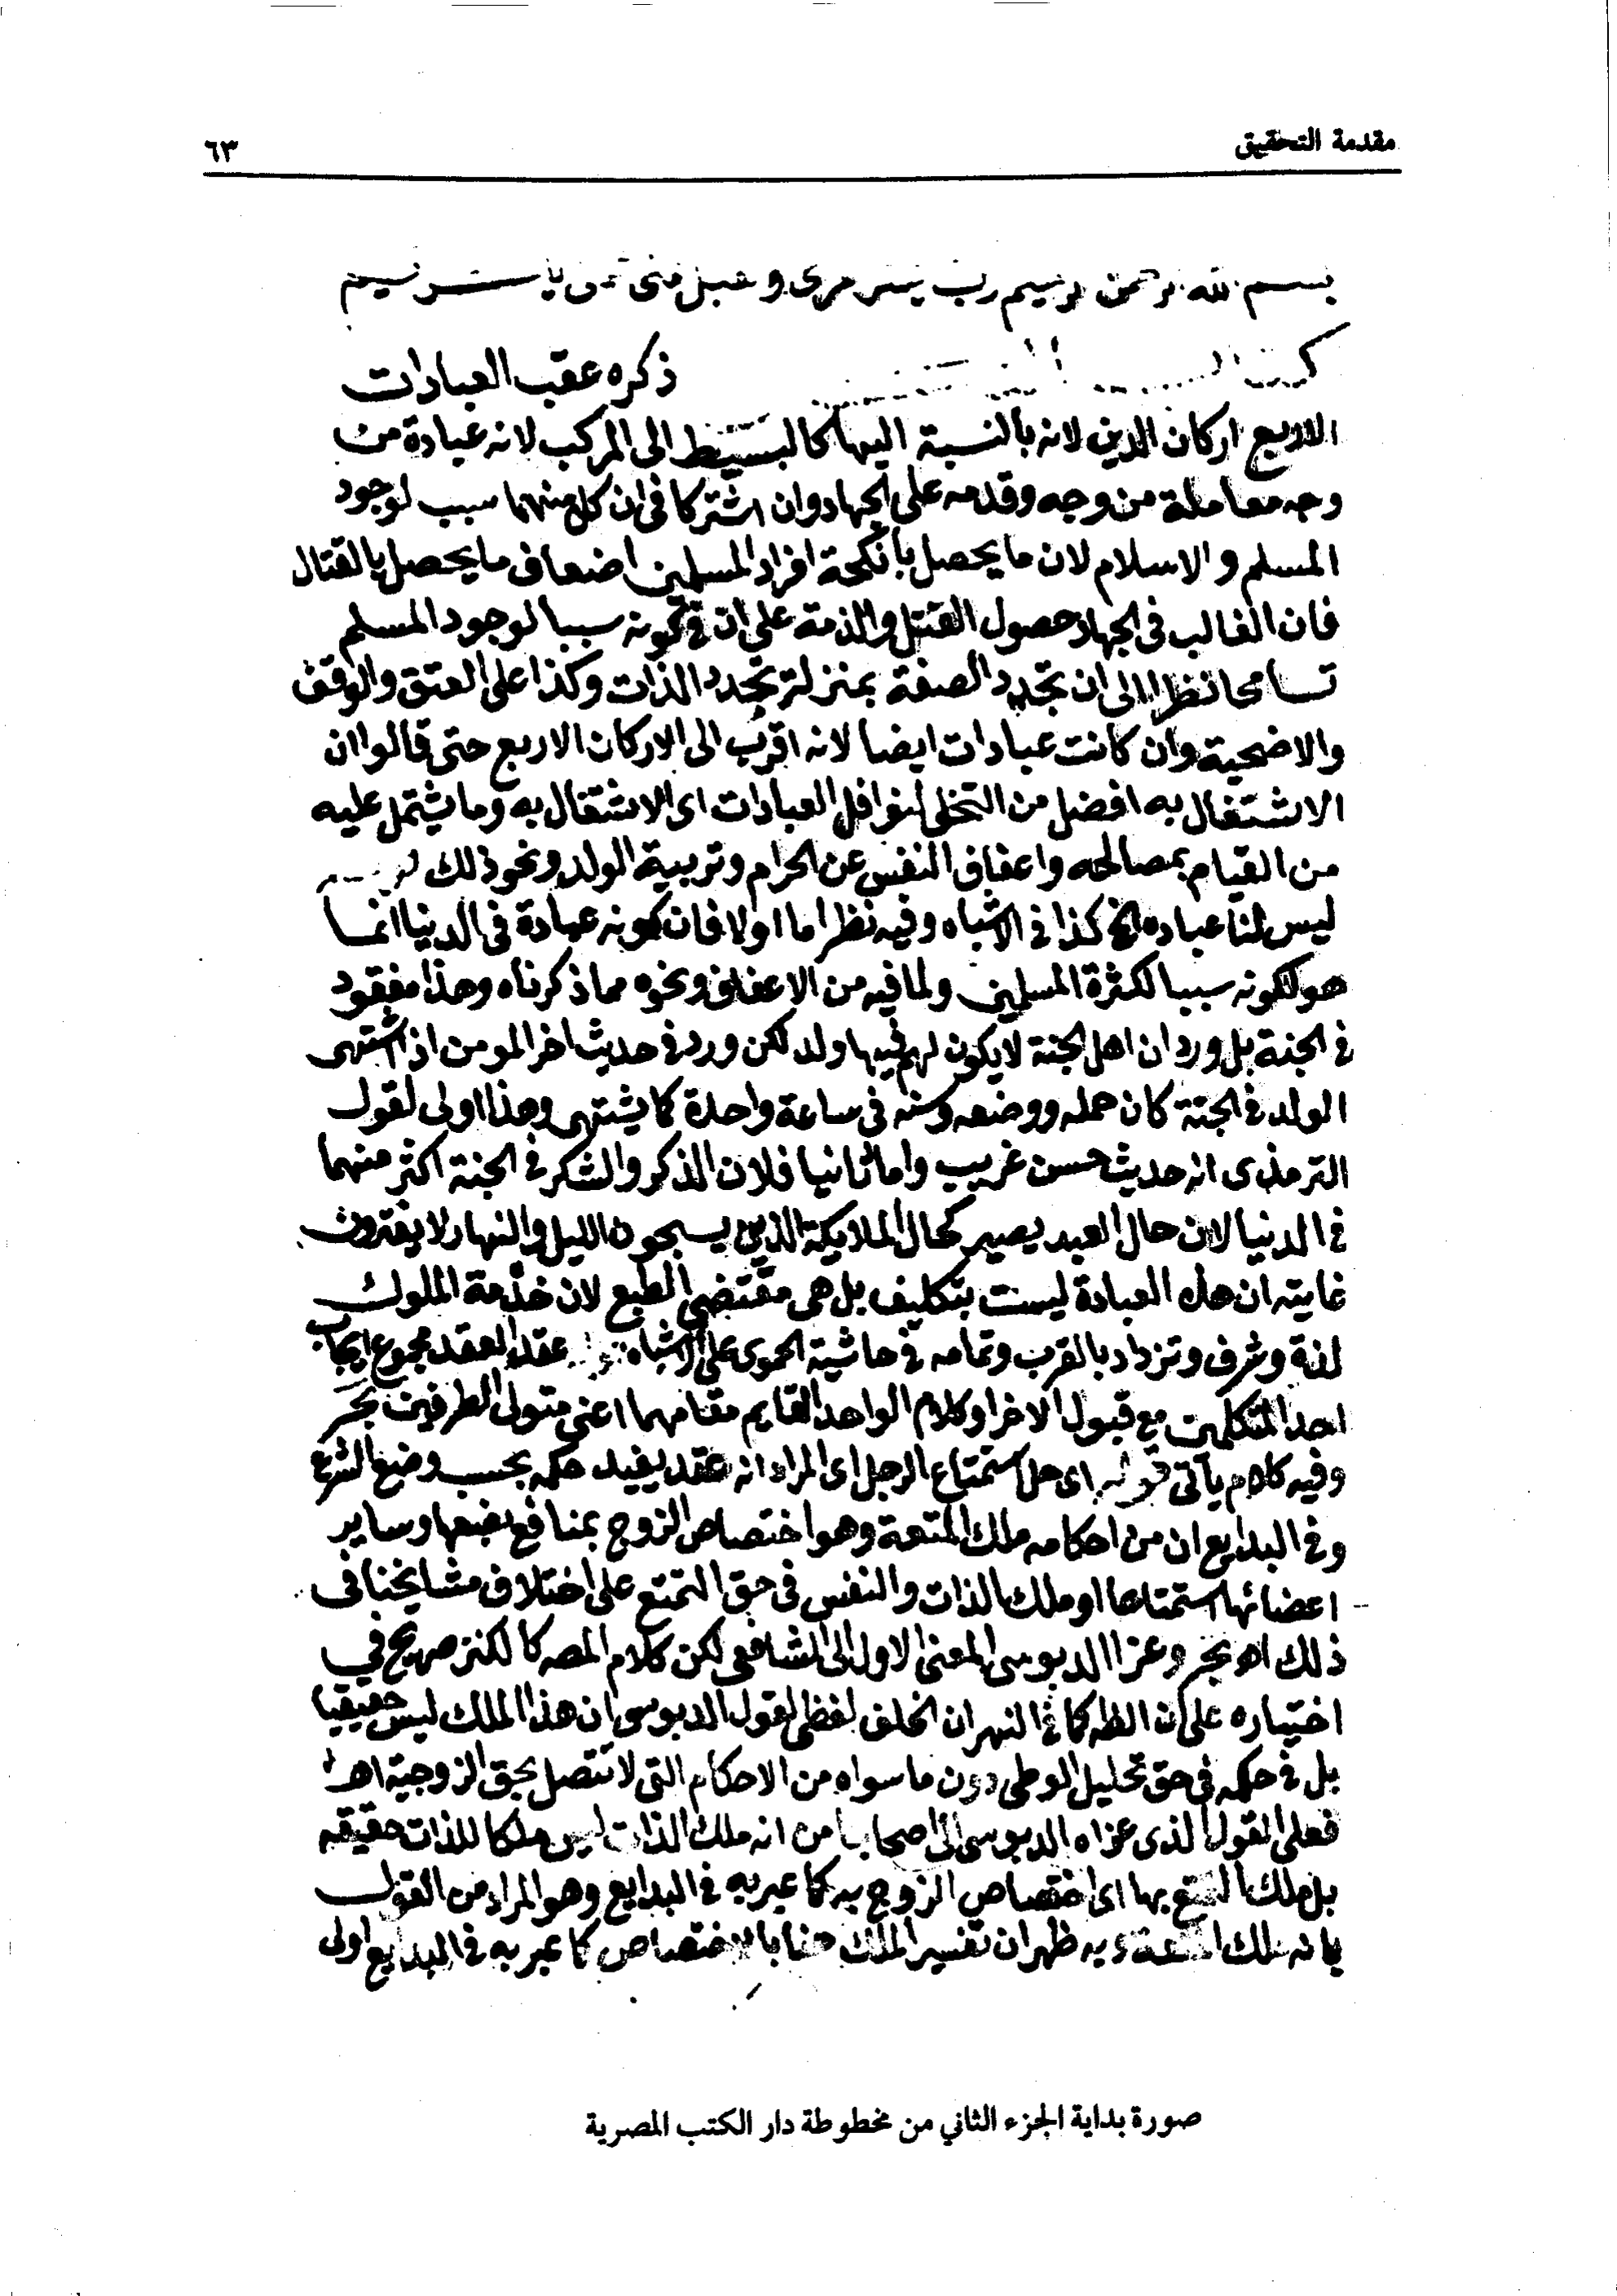 مقدمة التحقيق
٦٣
بسم الله الرحمن الرحيم رب يسر
ذكره عقب العبادات
الاربع اركان الدين لانه بالنسبة اليها كالبسيط الى المركب لانه عبادة من
وجه معاملة من وجه وقدمه على الجهاد وان اشتركا فى ان كل منهما سبب لوجود
المسلم والاسلام لان ما يحصل بانكحة افراد المسلمين اضعاف ما يحصل بالقتال
فان الغالب فى الجهاد حصول القتل والذمة على ان فى كونه سببا لوجود المسلم
تسامحا نظرا الى ان تجدد الصفة بمنزلة تجدد الذات وكذا على العتق والوقف
والاضحية وان كانت عبادات ايضا لانه اقرب الى الاركان الاربع حتى قالوا ان
الاشتغال به افضل من التخلى لنوافل العبادات اى الاشتغال به وما يشتمل عليه
من القيام بمصالحه واعفاف النفس عن الحرام وتربية الولد ونحو ذلك
ليس لنا عباده الخ كذا فى الاشباه وفيه نظر اما اولا فان كونه عبادة فى الدنيا انما
هو لكونه سببا لكثرة المسلمين ولما فيه من الاعفاف ونحوه مما ذكرناه وهذا مفقود
فى الجنة بل ورد ان اهل الجنة لا يكون لهم فيها ولد لكن ورد فى حديث اخر المومن اذا اشتهى
الولد فى الجنة كان حمله ووضعه وسنه فى ساعة واحدة كما يشتهى وهذا اولى لقول
الترمذى انه حديث حسن غريب واما ثانيا فلان الذكر والشكر فى الجنة اكثر منهما
فى الدنيا لان حال العبد يصير كحال الملايكة الذين يسبحون الليل والنهار لا يفترون
غايته ان هذه العبادة ليست بتكليف بل هى مقتضى الطبع لان خدمة الملوك
لذة وشرف وتزداد بالقرب وتمامه فى حاشية الحموى على الاشباه عقد العقد مجموع ايجاب
احد المتكلمين مع قبول الاخر او كلام الواحد القايم مقامهما اعنى متولى الطرفين بحر
وفيه كلام ياتى قوله اى حل استمتاع الرجل اى المراد انه عقد يفيد حكمه بحسب وضع الشرع
وفى البدايع ان من احكامه ملك المتعة وهو اختصاص الزوج بمنافع بضعها وساير
اعضائها استمتاعا او ملك الذات والنفس فى حق التمتع على اختلاف مشايخنا فى
ذلك اه بحر وعزا الدبوسى المعنى الاول الى الشافعى لكن كلام المصه كالكنز صريح فى
اختياره على ان الظه كما فى النهر ان الخلف لفظى لقول الدبوسى ان هذا الملك ليس حقيقيا
بل فى حكمه فى حق تحليل الوطى دون ما سواه من الاحكام التى لا تتصل بحق الزوجية اه
فعلى القول الذى عزاه الدبوسى الى اصحابنا من انه ملك الذات ليس ملكا للذات حقيقه
بل ملك التمتع بها اى اختصاص الزوج به كما عبر به فى البدايع وهو المراد من القول
بانه ملك المتعة وبه ظهر ان تفسير الملك هنا بالاختصاص كما عبر به فى البدايع اولى
صورة بداية الجزء الثاني من مخطوطة دار الكتب المصرية